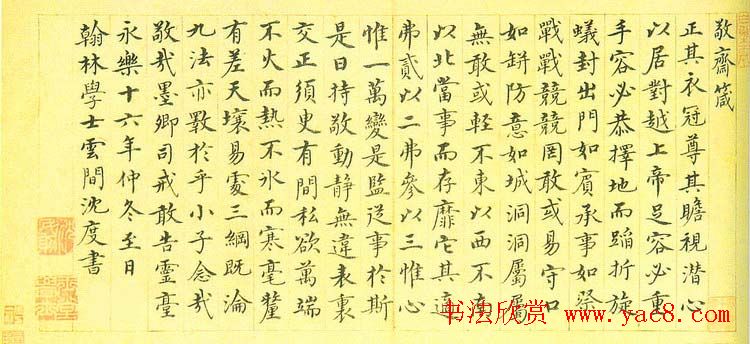 敬齋箴
正其衣冠尊其瞻視潛心
以居對越上帝足容必重
手容必恭擇地而蹈折旋
蟻封出門如賓承事如祭
戰戰兢兢罔敢或易守口
如缾防意如城洞洞屬屬
無敢或輕不東以西不南
以北當事而存靡它其適
弗貳以二弗參以三惟心
惟一萬變是監從事於斯
是曰持敬動靜無違表裏
交正須臾有間私欲萬端
不火而熱不氷而寒毫釐
有差天壤易處三綱既淪
九法亦斁於乎小子念哉
敬哉墨卿司戒敢告靈臺
永樂十六年仲冬至日
翰林學士雲間沈度書
书法欣赏
www.yac8.com